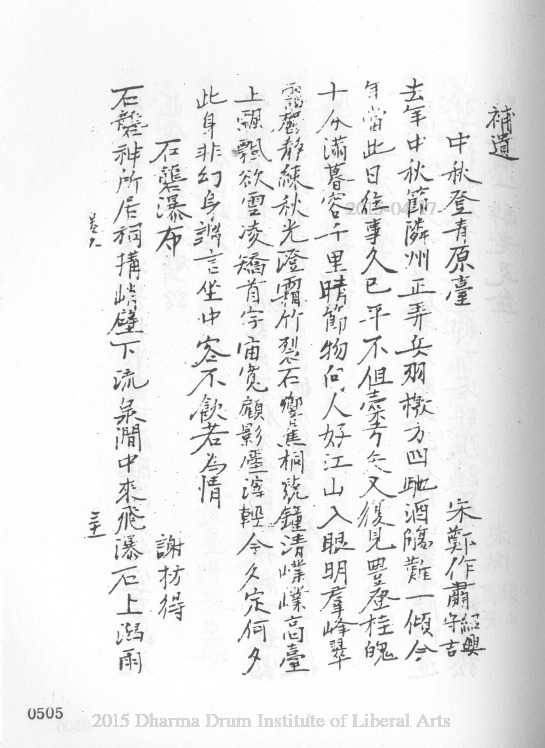 補遺
中秋登青原臺
宋鄭作肅紹興守吉
去年中秋節隣州正弄兵羽檄方四馳酒觴難一傾今
年當此日往事久已平不但橐弓矢又復見豐登桂魄
十分滿暮雲千里晴節物向人好江山入眼明群峰翠
靜練秋光澄霜竹裂石響蕉桐鐘清嶫嶫高臺
上飄飄欲雲凌矯首宇宙寬顧影塵滓輕今夕定何夕
此身非幻身謂言坐中客不飲若為情
石礱瀑布
謝枋得
石礱神所居祠搆峭壁下流泉澗中來飛瀑石上瀉雨
卷九
三十一
0505
2015 Dharma Drum Institute of Liberal Arts